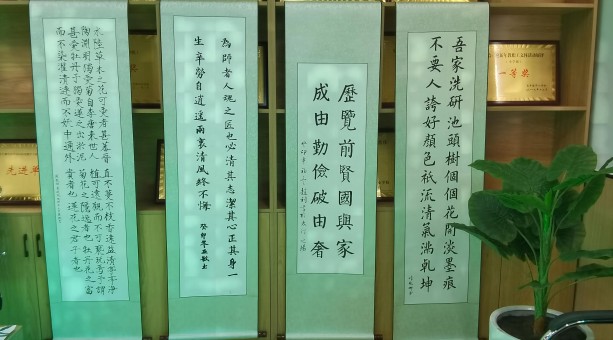 吾家洗研池頭樹個個花開淡墨痕
不要人誇好顏色祇流清氣滿乾坤
歷覽前賢國與家
成由勤儉破由奢
為師者人魂之匠也必清其志潔其心正其身一
生辛勞自逍遙兩袖清風終不悔
癸卯年
水陸草木之花可愛者甚蕃晉
陶淵明獨愛菊自李唐來世人
甚愛牡丹予獨愛蓮之出淤泥
而不染濯清漣而不妖中通外
直不蔓不枝香遠益清亭亭淨
植可遠觀而不可褻玩焉予謂
菊花之隱逸者也牡丹花之富
貴者也蓮花之君子者也
一等奖
先进单